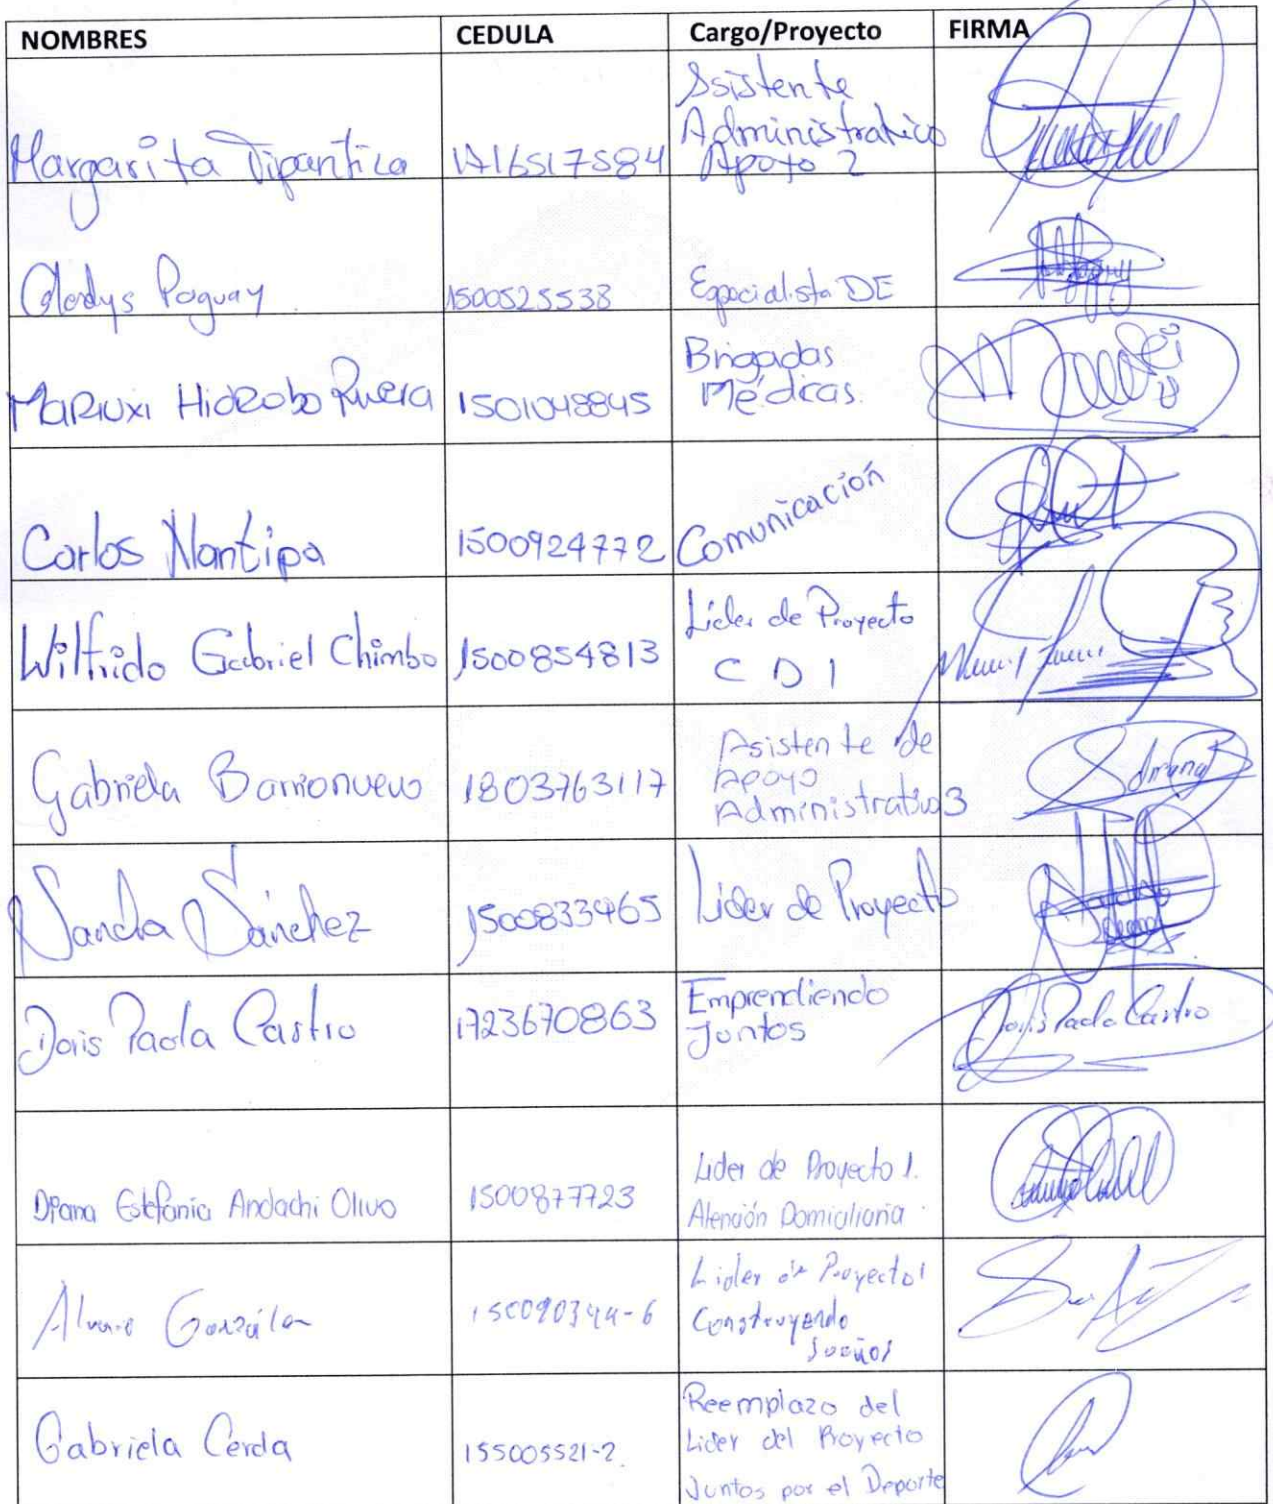 NOMBRES CEDULA Cargo/Proyecto FIRMA
Margarita Tipantica 1716517584 Asistente
Administrativo
Apoyo 2
Gladys Poguay 1500525538 Especialista DE
MARIUXI HIDROBO Rivera 1501048845 Brigadas
Médicas.
Carlos Nantipa 1500924772 Comunicación
Wilfrido Gabriel Chimbo 1500854813 Líder de Proyecto
CDI
Gabriela Barrionuevo 1803763117 Asistente de
Apoyo
Administrativo 3
Sandra Sánchez 1500833465 Líder de Proyecto
Doris Paola Castro 1723670863 Emprendiendo
Juntos
Doris Paola Castro
Diana Estefania Andachi Olivo 1500877723 Lider de Proyecto 1.
Atención Domiciliaria
Alvaro González 150090344-6 Lider de Proyecto 1
Construyendo
Sueños
Gabriela Cerda 155005521-2. Reemplazo del
Lider del Proyecto
Juntos por el Deporte